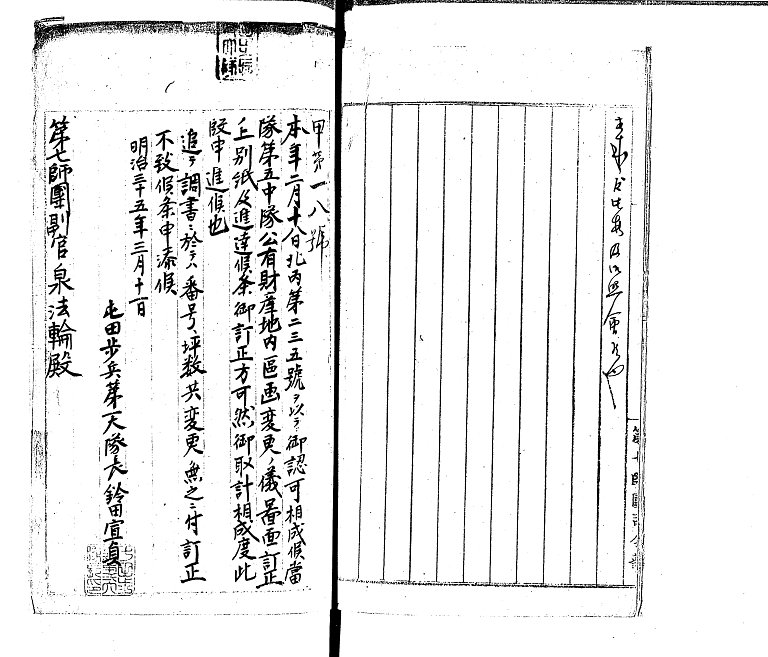 甲第一八號
本年二月十八日北丙第二三五號ヲ以テ御認可相成候當
隊第五中隊公有財産地内區画変更ノ儀圖面訂正
上別紙及進達候条御訂正方可然御取計相成度此
段申進候也
追テ調書ニ於テハ番号、坪数共変更無之ニ付訂正
不致候条申添候
明治三十五年三月十一日
屯田歩兵第一大隊長鈴田宜貞
第七師團副官泉法輪殿
第七師團司令部